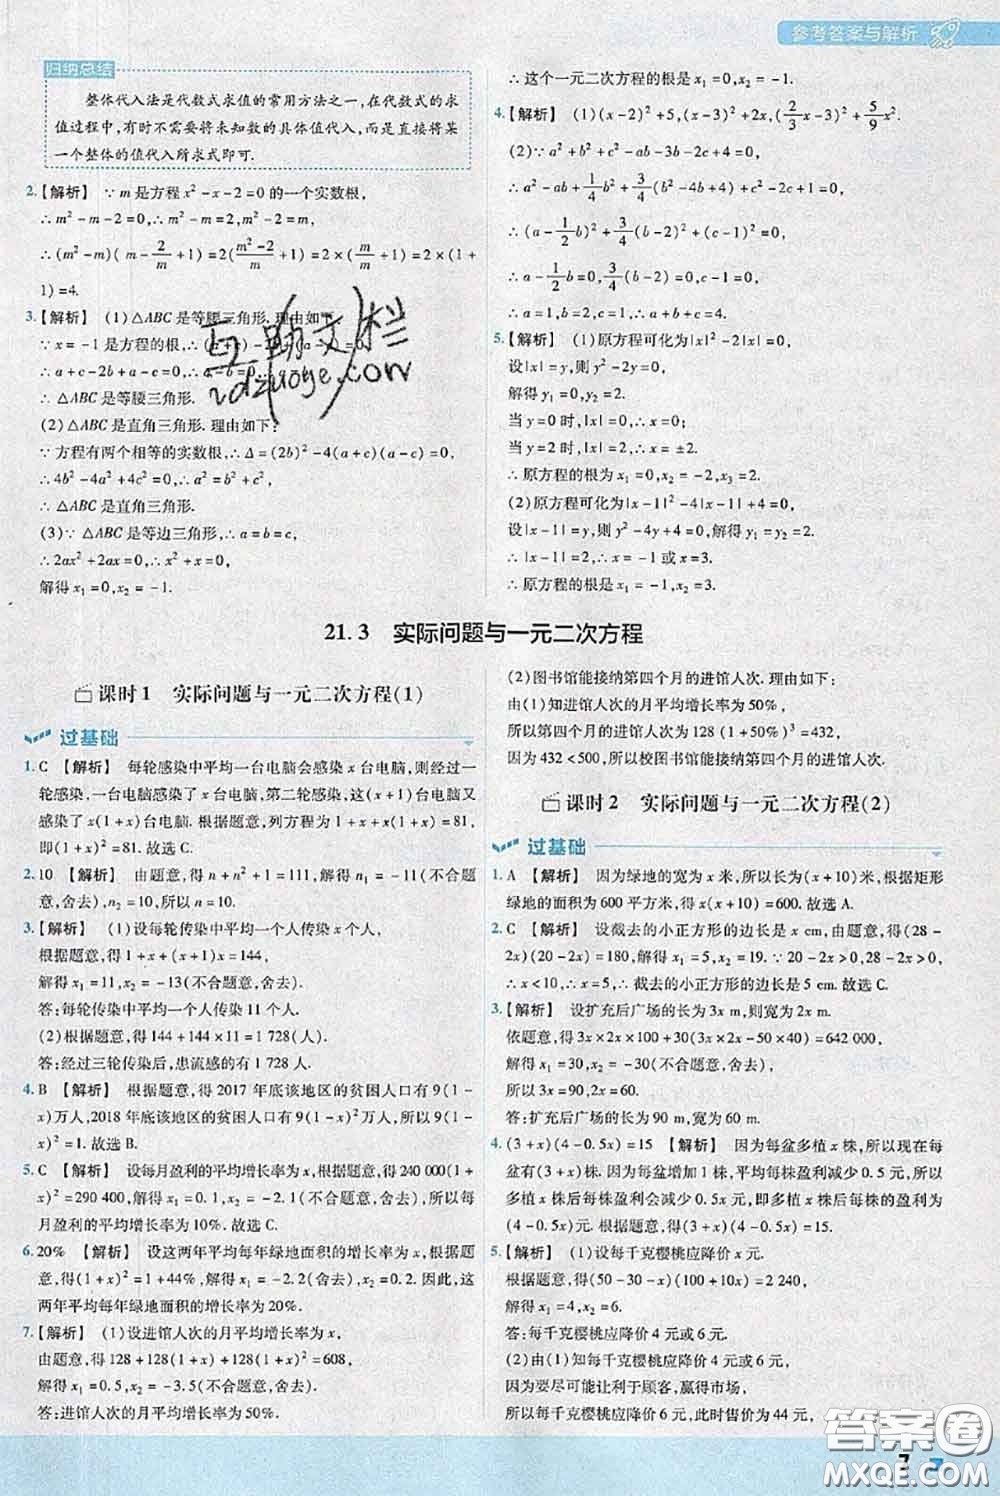 参考答案与解析
归纳总结
整体代入法是代数式求值的常用方法之一,在代数式的求
值过程中,有时不需要将未知数的具体值代入,而是直接将某
一个整体的值代入所求式即可.
2.【解析】 ∵m是方程x²-x-2=0的一个实数根,
∴m²-m-2=0,∴m²-m=2,m²-2=m,
∴(m²-m)(m-2/m+1)=2((m²-2)/m+1)=2×(m/m+1)=2×(1+
1)=4.
3.【解析】 (1)△ABC是等腰三角形. 理由如下:
∵x=-1是方程的根,∴(a+
∴a+c-2b+a-c=0,∴a-b=0
∴△ABC是等腰三角形.
(2)△ABC是直角三角形. 理由如下:
∵方程有两个相等的实数根,∴Δ=(2b)²-4(a+c)(a-c)=0,
∴4b²-4a²+4c²=0,∴a²=b²+c²,
∴△ABC是直角三角形.
(3)∵△ABC是等边三角形,∴a=b=c,
∴2ax²+2ax=0,∴x²+x=0,
解得x₁=0,x₂=-1.
∴这个一元二次方程的根是x₁=0,x₂=-1.
4.【解析】 (1)(x-2)²+5,(x-3)²+2x,(2/3x-3)²+5/9x².
(2)∵a²+b²+c²-ab-3b-2c+4=0,
∴a²-ab+1/4b²+3/4b²-3b+3+c²-2c+1=0,
∴(a-1/2b)²+3/4(b-2)²+(c-1)²=0,
∴a-1/2b=0,3/4(b-2)=0,c-1=0,
∴a=1,b=2,c=1,∴a+b+c=4.
5.【解析】 (1)原方程可化为|x|²-2|x|=0,
设|x|=y,则y²-2y=0,
解得y₁=0,y₂=2.
当y=0时,|x|=0,∴x=0;
当y=2时,|x|=2,∴x=±2.
∴原方程的根为x₁=0,x₂=-2,x₃=2.
(2)原方程可化为|x-1|²-4|x-1|+4=0,
设|x-1|=y,则y²-4y+4=0,解得y₁=y₂=2.
∴|x-1|=2,∴x=-1或x=3.
∴原方程的根是x₁=-1,x₂=3.
互助文栏
hdzuoye.com
21.3 实际问题与一元二次方程
课时1 实际问题与一元二次方程(1)
过基础
1.C 【解析】 每轮感染中平均一台电脑会感染x台电脑,则经过一
轮感染,一台电脑感染了x台电脑,第二轮感染,这(1+x)台电脑又
感染了x(1+x)台电脑. 根据题意,列方程为1+x+x(1+x)=81,
即(1+x)²=81.故选C.
2.10 【解析】 由题意,得n+n²+1=111,解得n₁=-11(不符合
题意,舍去),n₂=10,所以n=10.
3.【解析】 (1)设每轮传染中平均一个人传染x个人,
根据题意,得1+x+x(x+1)=144,
解得x₁=11,x₂=-13(不合题意,舍去).
答:每轮传染中平均一个人传染11个人.
(2)根据题意,得144+144×11=1 728(人).
答:经过三轮传染后,患流感的有1 728人.
4.B 【解析】 根据题意,得2017年底该地区的贫困人口有9(1-
x)万人,2018年底该地区的贫困人口有9(1-x)²万人,所以9(1-
x)²=1.故选B.
5.C 【解析】 设每月盈利的平均增长率为x,根据题意,得240 000(1+
x)²=290 400,解得x₁=0.1,x₂=-2.1(不符合题意,舍去),所以每
月盈利的平均增长率为10%.故选C.
6.20% 【解析】 设这两年平均每年绿地面积的增长率为x,根据题
意,得(1+x)²=1+44%,解得x₁=-2.2(舍去),x₂=0.2.因此,这
两年平均每年绿地面积的增长率为20%.
7.【解析】 (1)设进馆人次的月平均增长率为x,
由题意,得128+128(1+x)+128(1+x)²=608,
解得x₁=0.5,x₂=-3.5(不合题意,舍去).
答:进馆人次的月平均增长率为50%.
(2)图书馆能接纳第四个月的进馆人次. 理由如下:
由(1)知进馆人次的月平均增长率为50%,
所以第四个月的进馆人次为128(1+50%)³=432,
因为432<500,所以校图书馆能接纳第四个月的进馆人次.
课时2 实际问题与一元二次方程(2)
过基础
1.A 【解析】 因为绿地的宽为x米,所以长为(x+10)米. 根据矩形
绿地的面积为600平方米,得x(x+10)=600.故选A.
2.C 【解析】 设截去的小正方形的边长是x cm,由题意,得(28-
2x)(20-2x)=180,解得x₁=5,x₂=19.∵20-2x>0,28-2x>0,
∴x<10,∴x=5,∴截去的小正方形的边长是5 cm.故选C.
3.【解析】 设扩充后广场的长为3x m,则宽为2x m.
依题意,得3x×2x×100+30(3x×2x-50×40)=642 000,
解得x₁=30,x₂=-30(不合题意,舍去).
所以3x=90,2x=60.
答:扩充后广场的长为90 m,宽为60 m.
4.(3+x)(4-0.5x)=15 【解析】 因为每盆多植x株,所以现在每
盆有(3+x)株. 因为每盆增加1株,平均每株盈利减少0.5元,所以
多植x株时每株盈利会减少0.5x元,即多植x株后每株的盈利为
(4-0.5x)元. 根据题意,得(3+x)(4-0.5x)=15.
5.【解析】 (1)设每千克樱桃应降价x元.
根据题意,得(50-30-x)(100+10x)=2 240,
解得x₁=4,x₂=6.
答:每千克樱桃应降价4元或6元.
(2)由(1)知每千克樱桃应降价4元或6元,
因为要尽可能让利于顾客,赢得市场,
所以每千克樱桃应降价6元,此时售价为44元,
7
答案圈
MXQE.COM